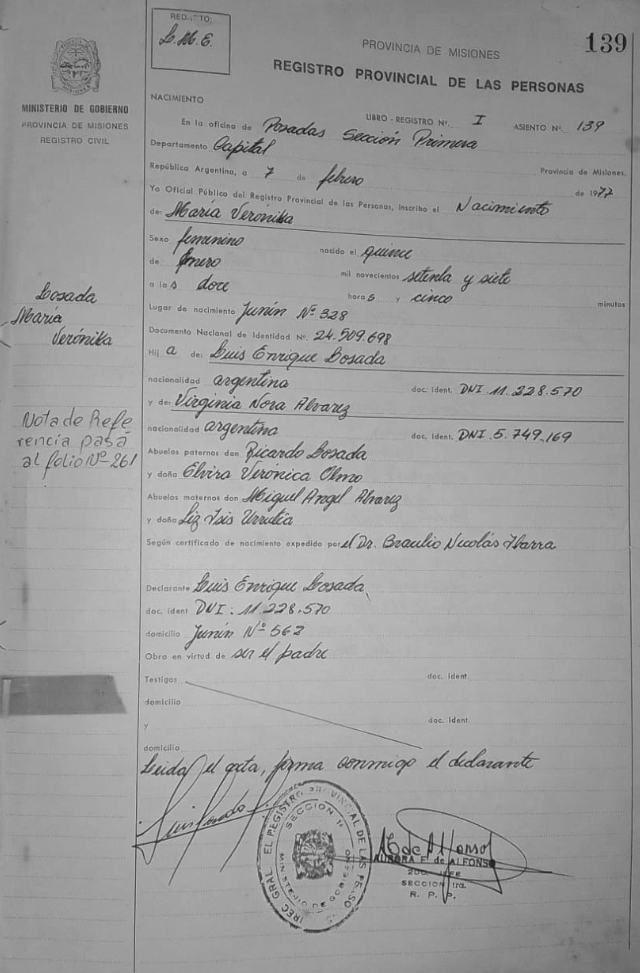 REDACTO:
L.M.E.
139
PROVINCIA DE MISIONES
REGISTRO PROVINCIAL DE LAS PERSONAS
MINISTERIO DE GOBIERNO
PROVINCIA DE MISIONES
REGISTRO CIVIL
NACIMIENTO
LIBRO - REGISTRO Nº. I ASIENTO Nº. 139
En la oficina de Posadas Sección Primera
Departamento Capital Provincia de Misiones.
República Argentina, a 7 de febrero de 1977
Yo Oficial Público del Registro Provincial de las Personas, inscribo el Nacimiento
de: María Verónika
Sexo femenino nacido el quince
de Enero mil novecientos setenta y siete
a las doce horas y cinco minutos
Lugar de nacimiento Junín Nº 328
Documento Nacional de Identidad Nº. 24.509.698
Hija de: Luis Enrique Losada
nacionalidad argentina doc. ident. DNI 11.228.570
y de: Virginia Nora Alvarez
nacionalidad argentina doc. ident. DNI 5.749.169
Abuelos paternos don Ricardo Losada
y doña Elvira Verónica Olmo
Abuelos maternos don Miguel Angel Alvarez
y doña Liz Isis Urrutia
Según certificado de nacimiento expedido por el Dr. Braulio Nicolás Ibarra
Declarante Luis Enrique Losada
doc. ident DNI. 11.228.570
domicilio Junín Nº 562
Obra en virtud de ser el padre
Testigos doc. ident.
domicilio
y doc. ident
domicilio
Leída el acta, firma conmigo el declarante
Losada
María
Verónika
Nota de Refe
rencia pasa
al folio Nº 261
REGISTRO PROVINCIAL DE LAS PERSONAS
SECCION 1ª
MINISTERIO DE GOBIERNO
AURORA E. de ALFONSO
2DO. JEFE
SECCION 1ra.
R. P. P.